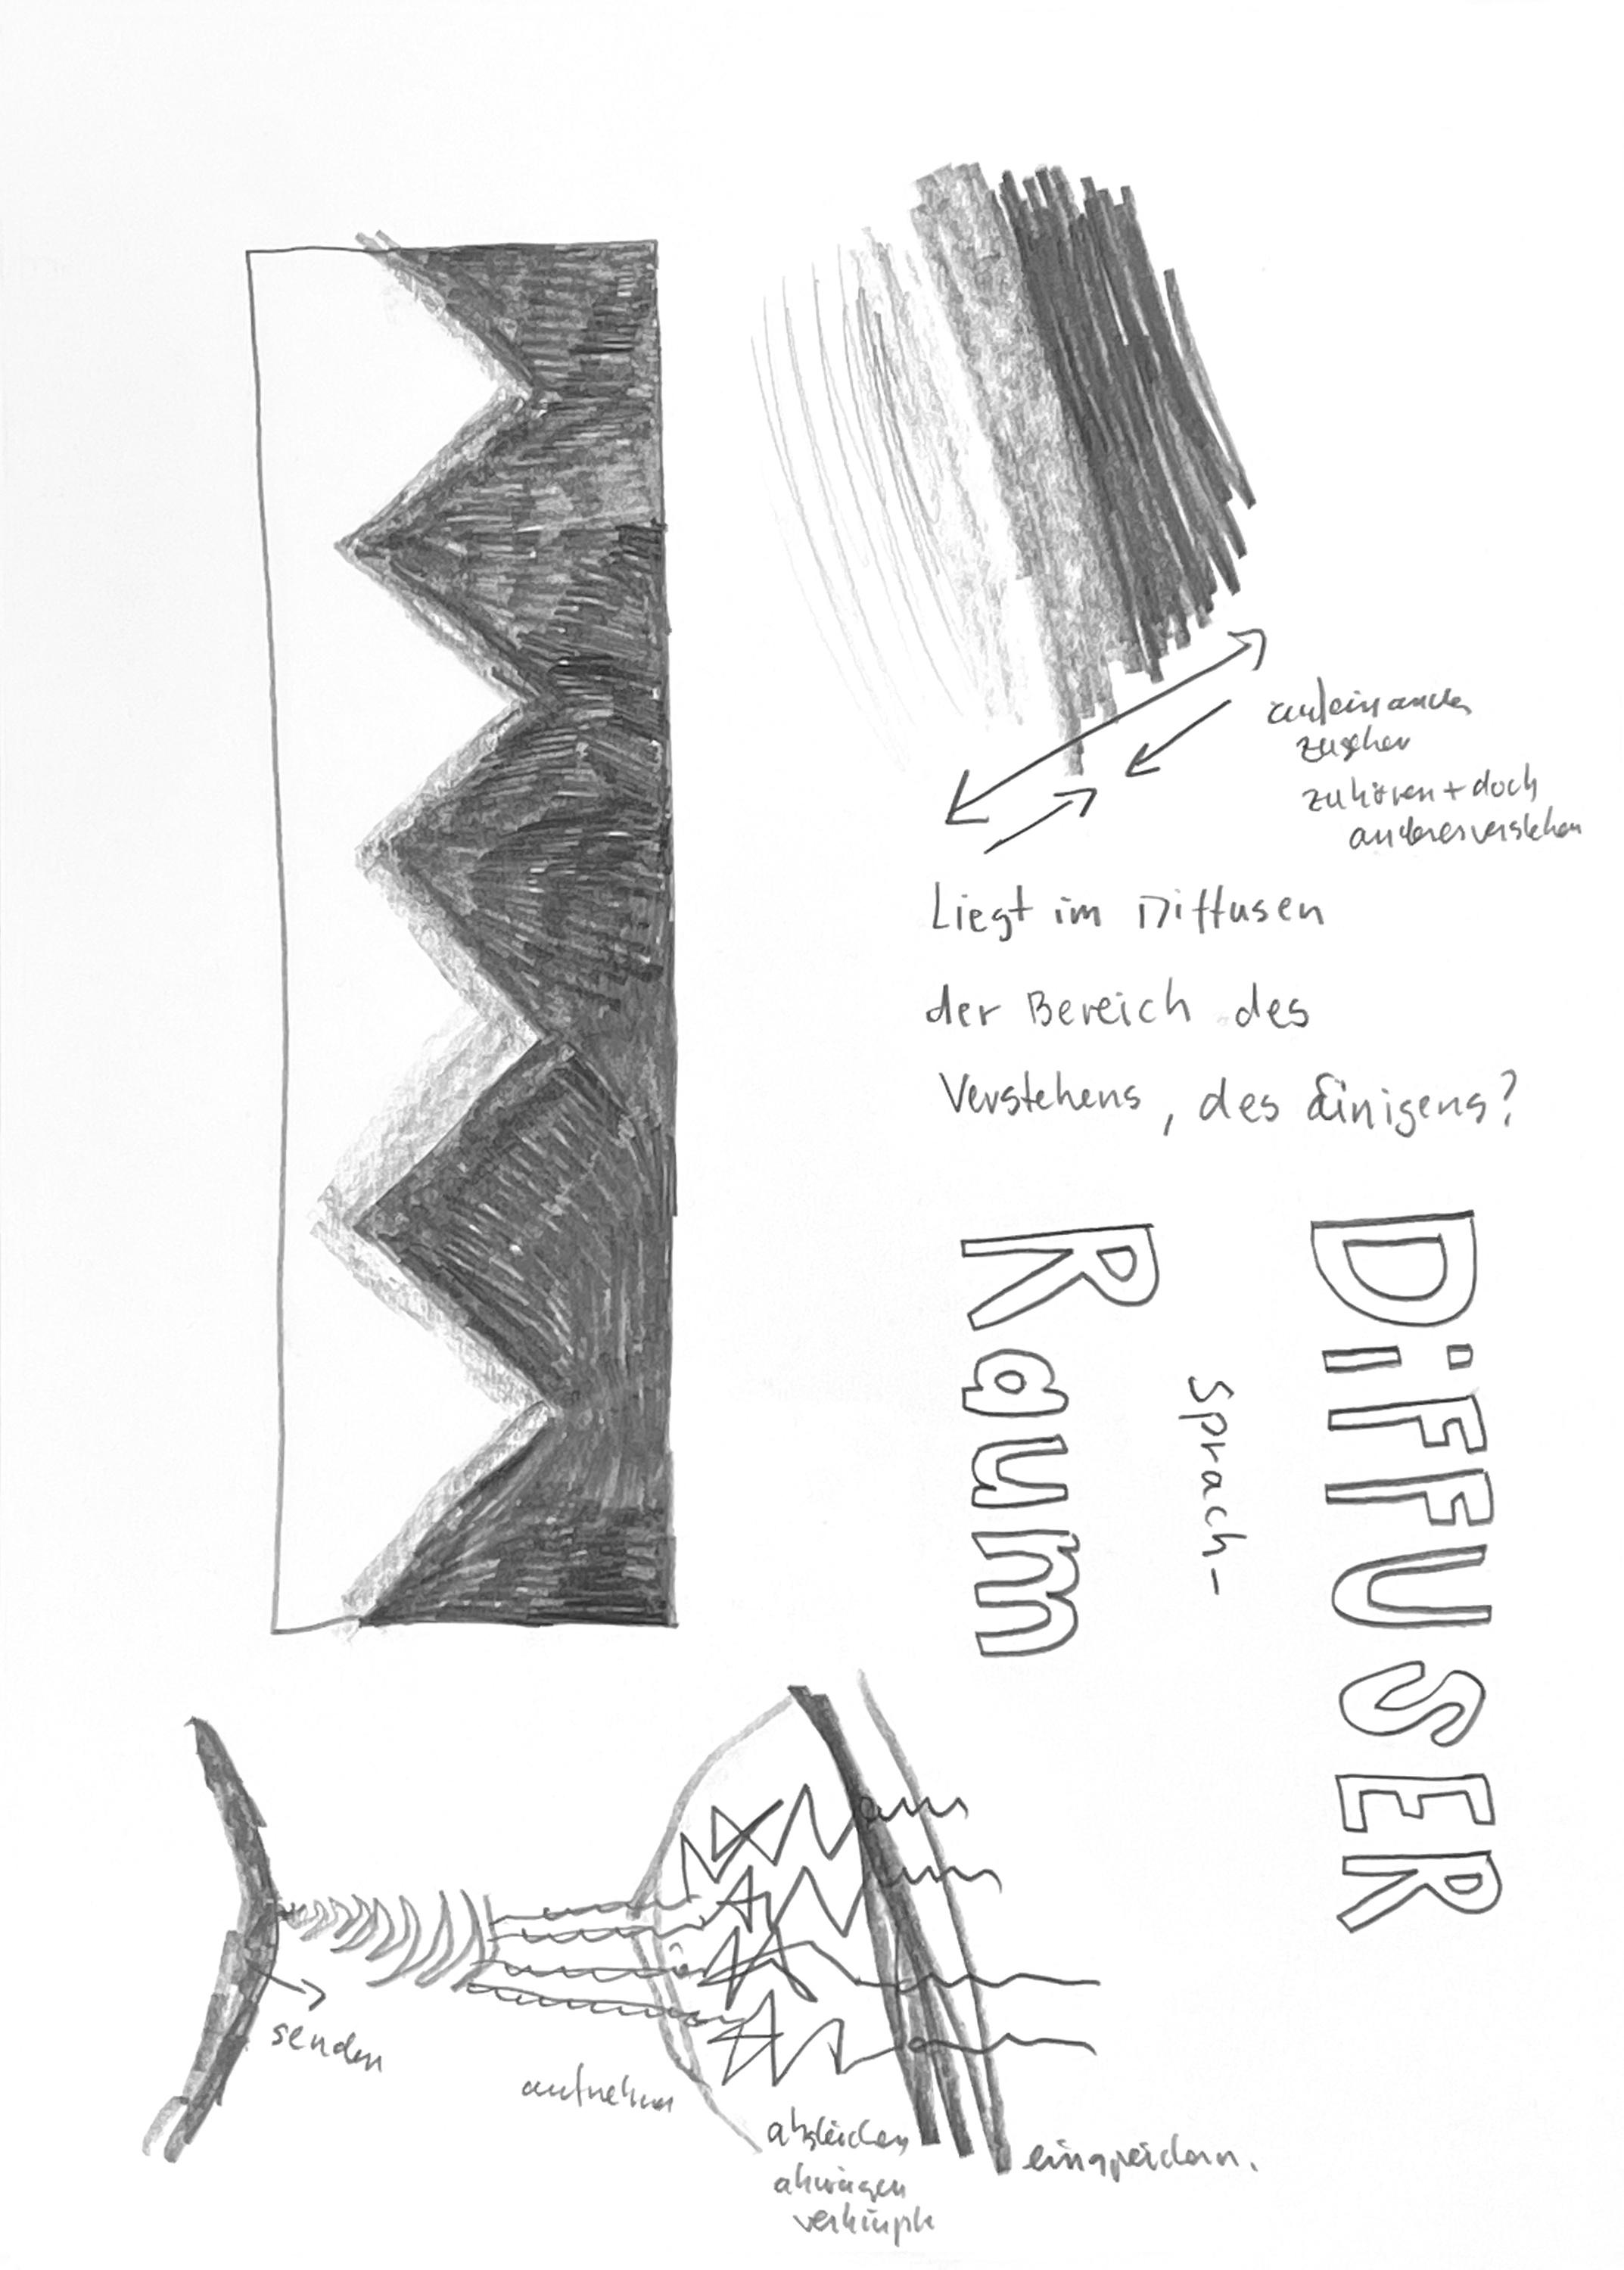 aufeinander
zugehen
zuhören + doch
anderes verstehen
Liegt im Diffusen
der Bereich des
Verstehens, des Einigens?
DiFFUSER
Sprach-
Raum
senden
aufnehmen
abgleichen
abwägen
verknüpfen
einspeichern.